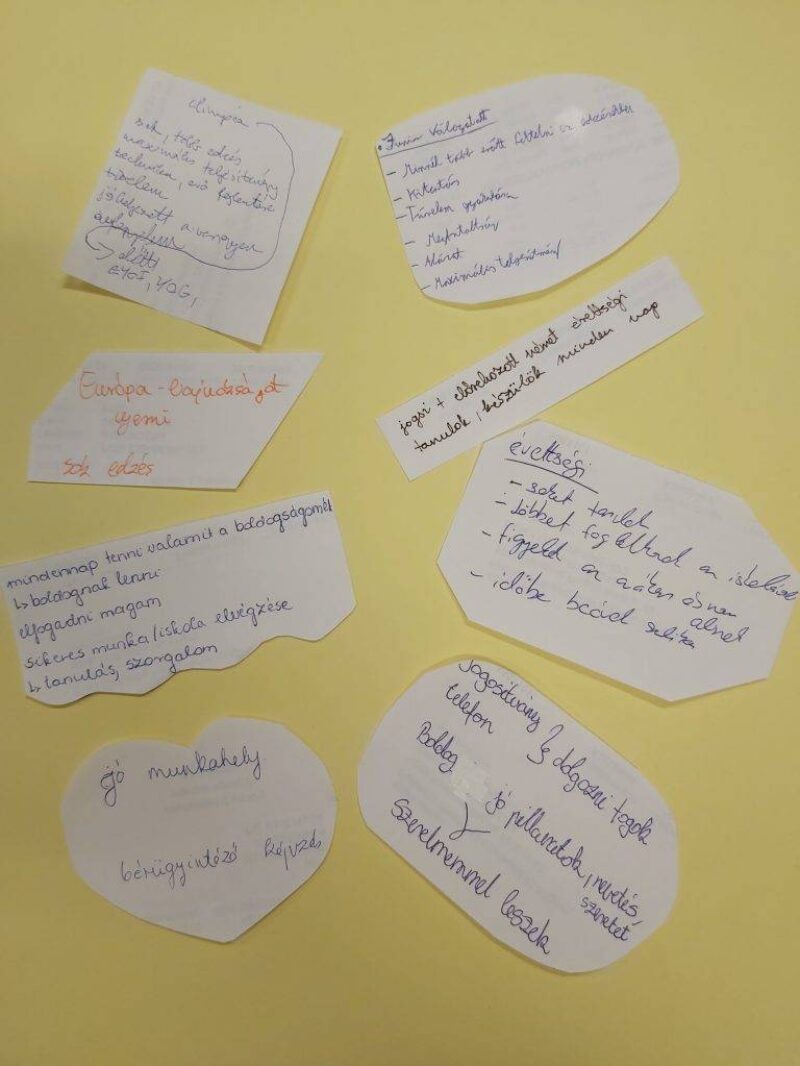 olimpia
sok, több edzés
maximális teljesítmény
technika, erő fejlesztése
türelem
jó helyezett a versenyen
előtti
EYOF, YOG,
Junior Válogatott
- Minnél több erőt feltenni az edzésekbe
- Kitartás
- Türelem gyakorlása
- Megfontoltság
- Alázat
- Maximális teljesítmény
jogsi + előrehozott német érettségi
tanulok, készülök minden nap
Európa-bajnokságot
nyerni
sok edzés
érettségi
- sokat tanulok
- többet foglalkozni az iskolával
- figyelni az órákon és nem
aludni
- időbe
mindennap tenni valamit a boldogságomért
↳ boldognak lenni
elfogadni magam
sikeres munka/iskola elvégzése
↳ tanulás, szorgalom
jogosítvány
telefon
↳ dolgozni fogok
Boldog
jó pillanatok, nevetés,
szeretet
Szerelmemmel leszek
jó munkahely
bérügyintéző képzés